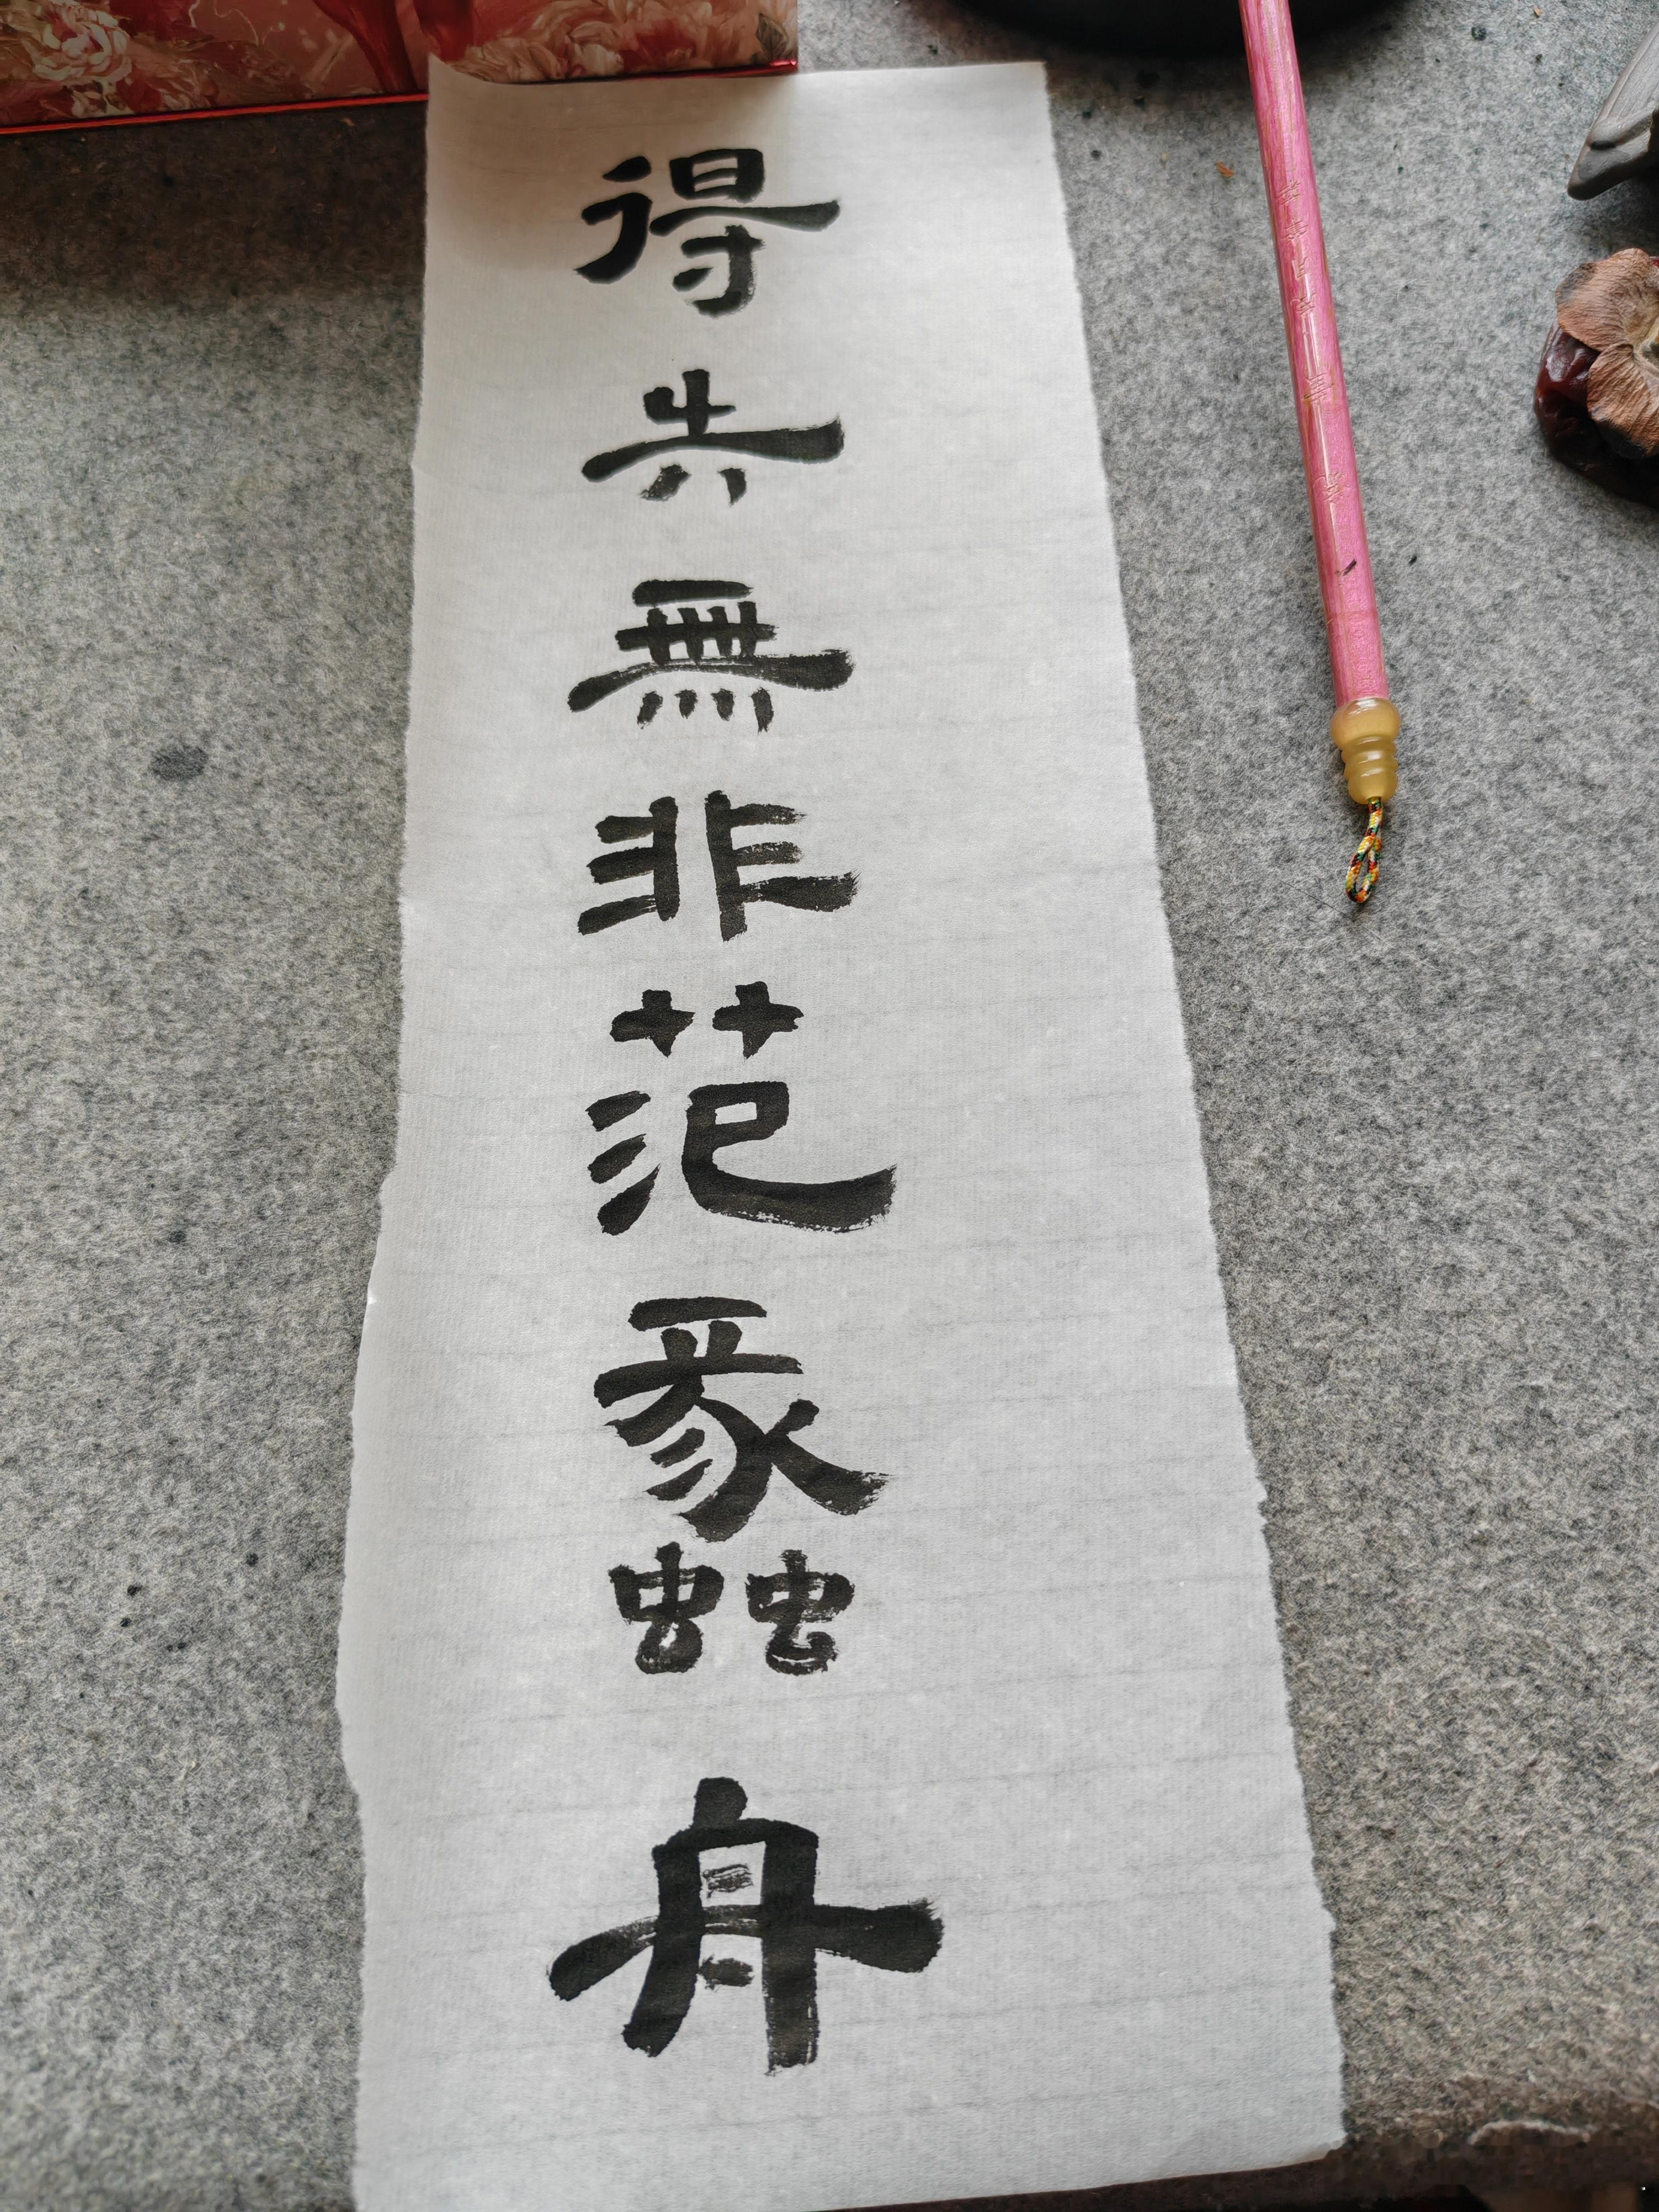 得失無非范蠡舟